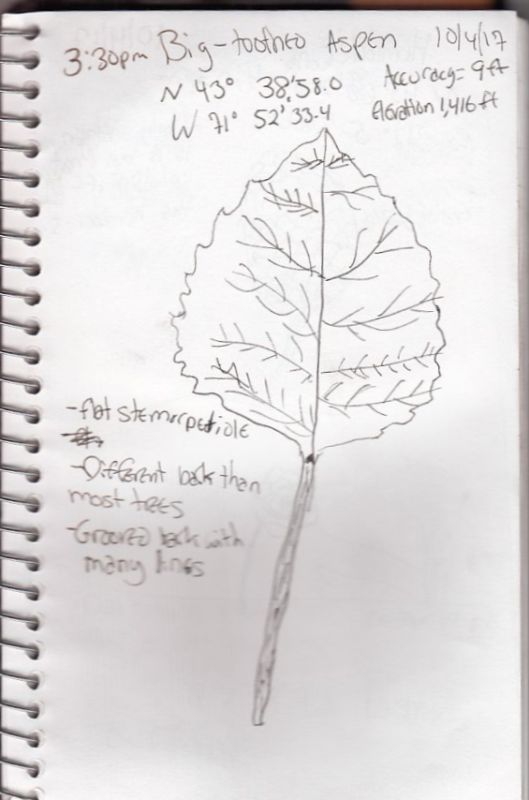 3:30pm Big-toothed Aspen 10/4/17
N 43° 38'58.0 Accuracy= 9ft
W 71° 52'33.4 Elevation 1,416 ft
-flat stem or petiole
-Different bark than
most trees
-Grooved bark with
many lines